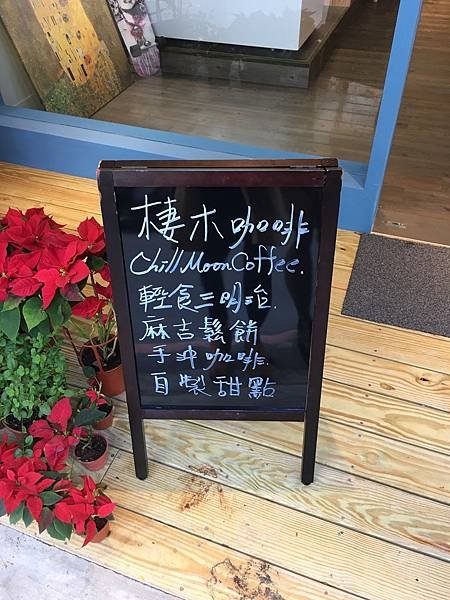 棲木咖啡
Chill Moon Coffee.
輕食三明治.
麻吉鬆餅
手沖咖啡.
自製甜點